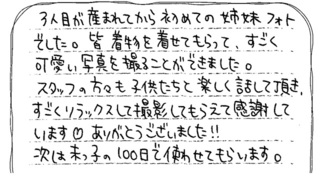 3人目が産まれてから初めての姉妹フォト
でした。皆着物を着せてもらって、すごく
可愛い写真を撮ることができました。
スタッフの方々も子供たちと楽しく話して頂き、
すごくリラックスして撮影してもらえて感謝して
います♡ ありがとうございました!!
次は末っ子の100日で使わせてもらいます。